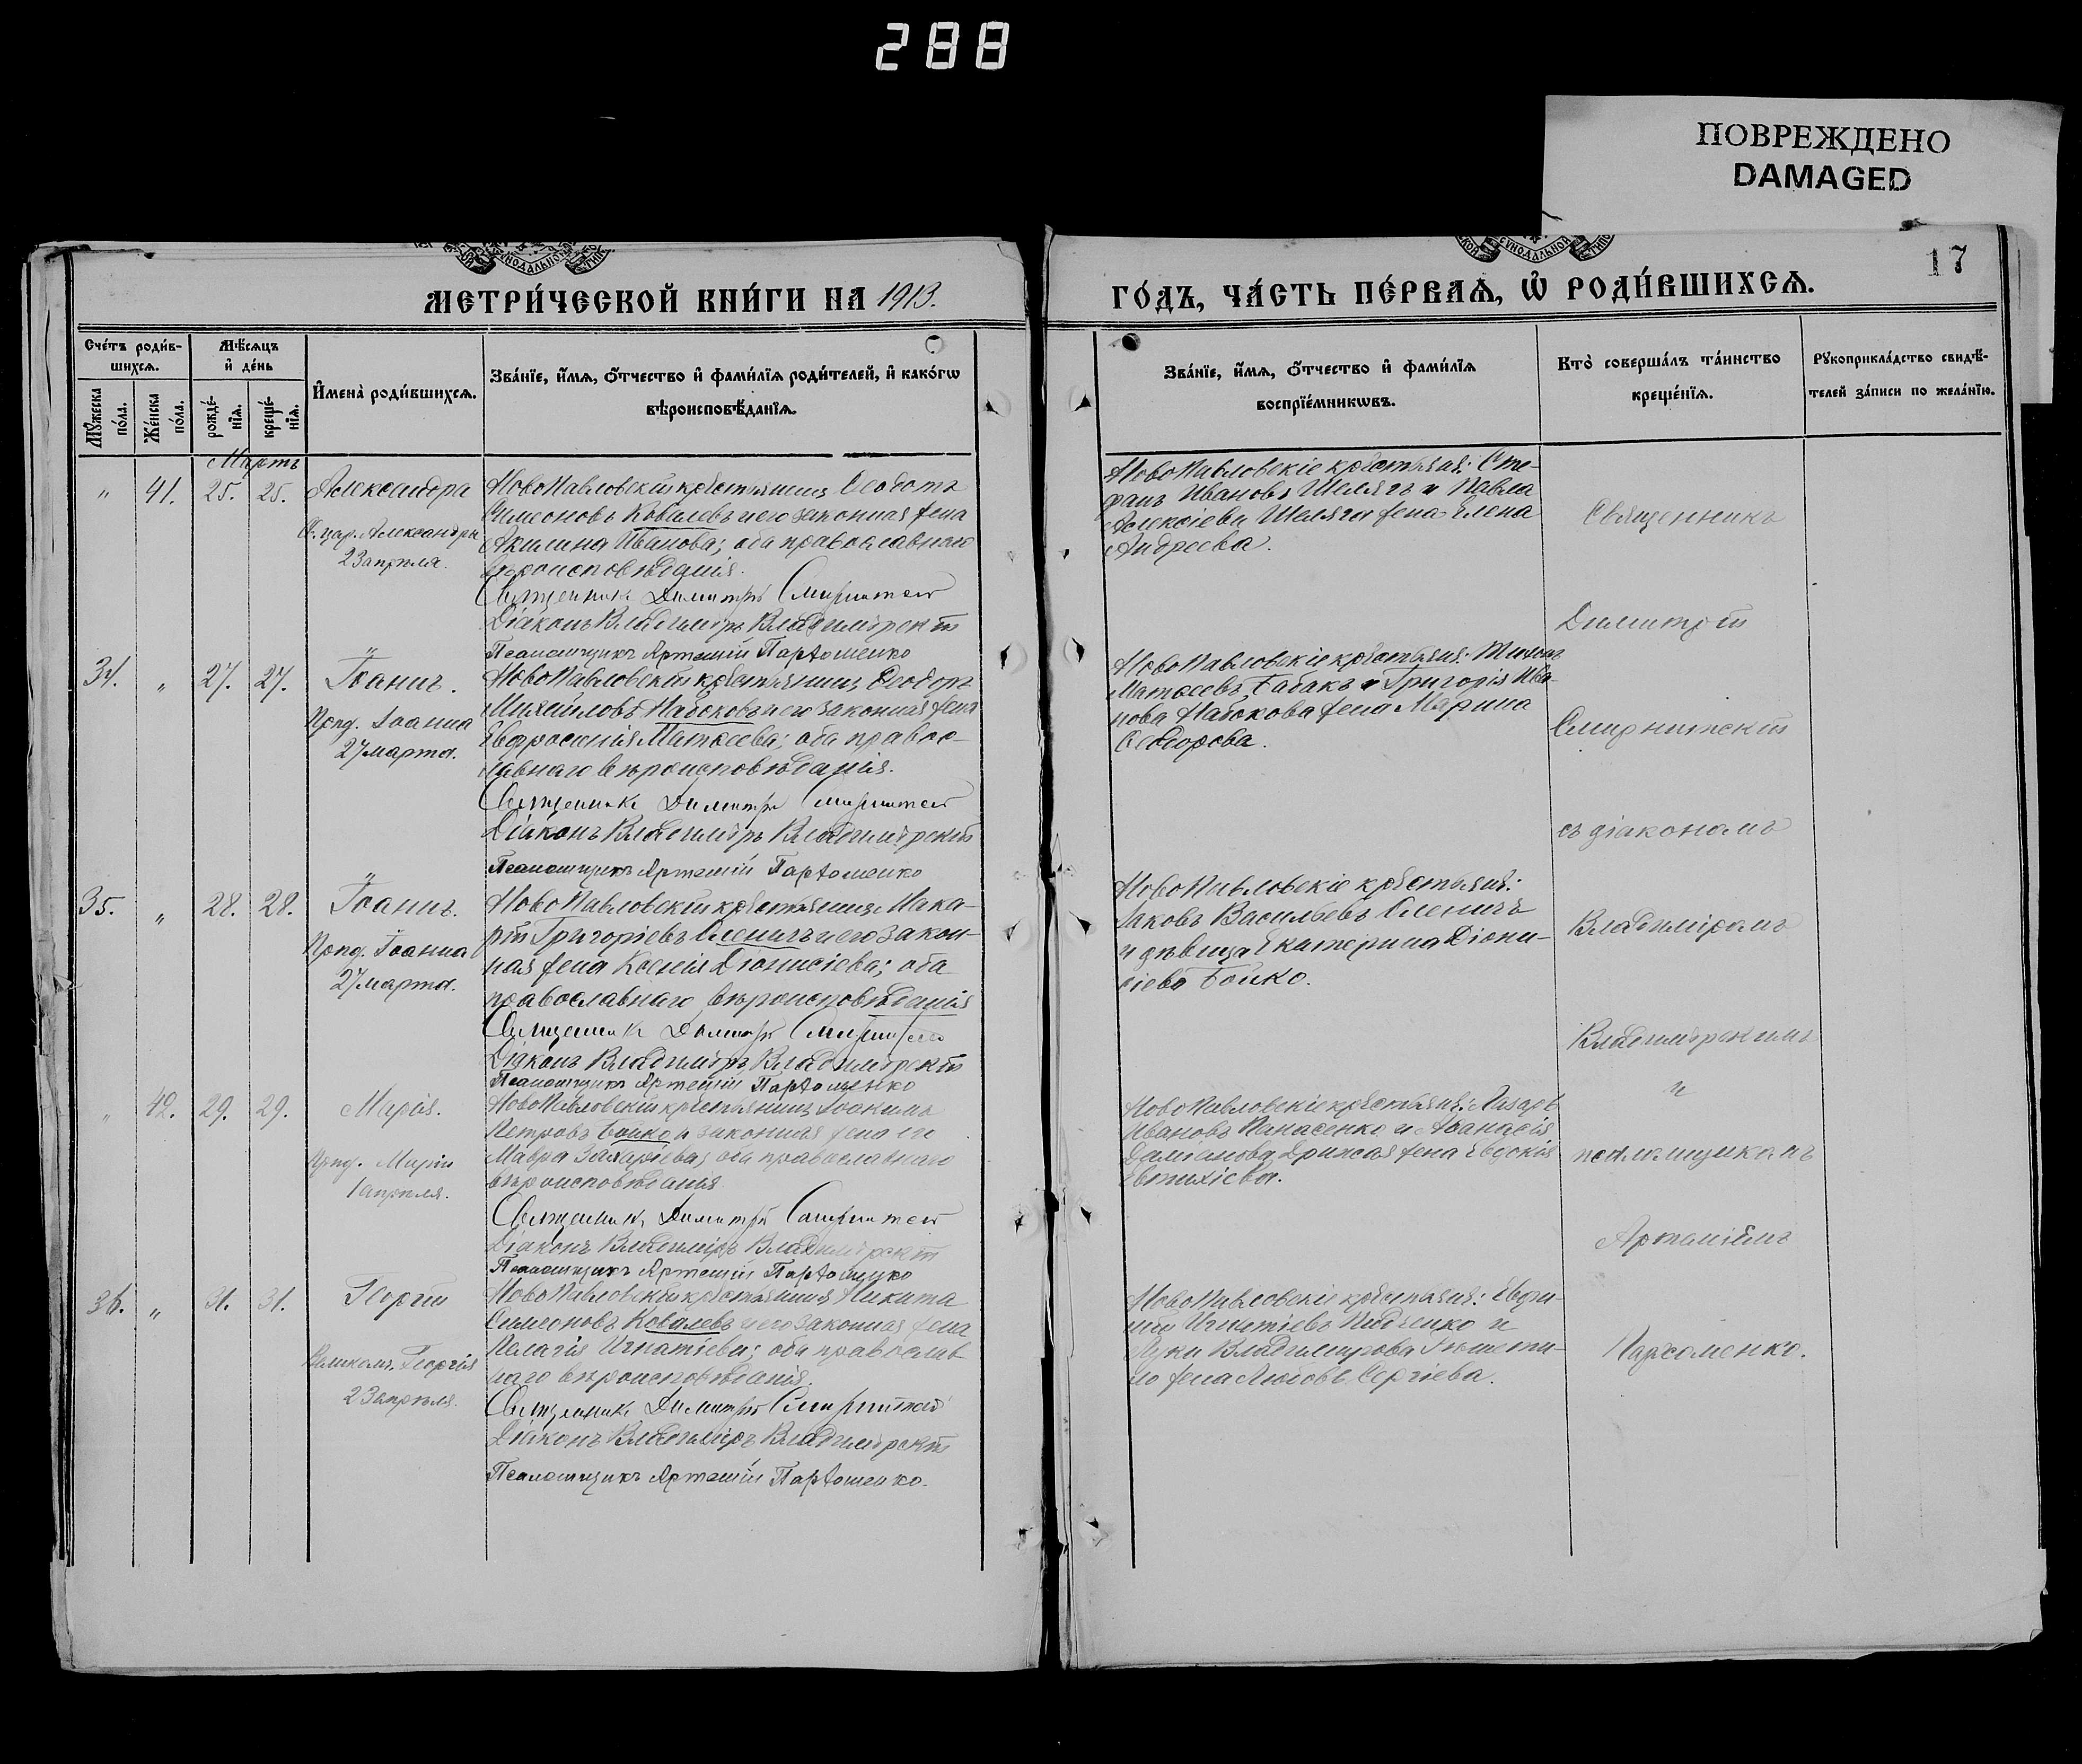 288
ПОВРЕЖДЕНО
DAMAGED
17
МЕТРИ́ЧЕСКОЙ КНИ́ГИ НА 1913.
ГО́ДЪ, ЧА́СТЬ ПЕ́РВАѦ, Ѡ҆ РОДИ́ВШИХСѦ.
Сче́тъ роди́в-
шихсѧ.
Мѣ́сѧцъ
и҆ де́нь
Мꙋ́жеска
по́ла.
Же́нска
по́ла.
рожде́-
нїѧ.
креще́-
нїѧ.
И҆мена̀ роди́вшихсѧ.
Зва́нїе, и҆́мѧ, ѻ҆́тчество и҆ фами́лїѧ роди́телей, и҆ како́гѡ
вѣроисповѣ́данїѧ.
Зва́нїе, и҆́мѧ, ѻ҆́тчество и҆ фами́лїѧ
воспрїе́мникѡвъ.
Кто̀ соверша́лъ та́инство
креще́нїѧ.
Рꙋкоприкла́дство свидѣ́-
телей за́писи по жела́нїю.
Мартъ
" 41. 25. 25. Александра
Св. цар. Александры
23 апрѣля.
НовоПавловскій крестьянинъ Ѳеодотъ
Симеоновъ Ковалевъ и его законная жена
Акилина Иванова; оба православнаго
вѣроисповѣданія.
Священникъ Димитрій Смирнитскій
Діаконъ Владиміръ Владимірскій
Псаломщикъ Артемій Пархоменко
НовоПавловскіе крестьяне: Сте-
фанъ Ивановъ Шелягъ и Павла
Алексіева Шеляга жена Елена
Андреева.
34. " 27. 27. Іоаннъ.
Прпд. Іоанна
27 марта.
НовоПавловскій крестьянинъ Ѳеодоръ
Михайловъ Набоковъ и его законная жена
Евфросинія Матѳеева; оба правос-
лавнаго вѣроисповѣданія.
Священникъ Димитрій Смирнитскій
Діаконъ Владиміръ Владимірскій
Псаломщикъ Артемій Пархоменко
НовоПавловскіе крестьяне: Тихонъ
Матѳеевъ Бабакъ и Григорія Ива-
нова Набокова жена Марина
Ѳеодорова.
35. " 28. 28. Іоаннъ.
Прпд. Іоанна
27 марта.
НовоПавловскій крестьянинъ Мака-
рій Григоріевъ Оленичъ и его закон-
ная жена Ксенія Діонисіева; оба
православнаго вѣроисповѣданія
Священникъ Димитрій Смирнитскій
Діаконъ Владиміръ Владимірскій
Псаломщикъ Артемій Пархоменко
НовоПавловскіе крестьяне:
Іаковъ Васильевъ Оленичъ
и дѣвица Екатерина Діони-
сіева Бойко.
" 42. 29. 29. Марія.
Прпд. Маріи
1 апрѣля.
НовоПавловскій крестьянинъ Іоакимъ
Петровъ Бойко и законная жена его
Мавра Захаріева; оба православнаго
вѣроисповѣданія
Священникъ Димитрій Смирнитскій
Діаконъ Владиміръ Владимірскій
Псаломщикъ Артемій Пархоменко
НовоПавловскіе крестьяне: Лазарь
Ивановъ Панасенко и Аѳанасія
Даміанова жена Евдокія
Евтихіева.
36. " 31. 31. Георгій
Великом. Георгія
23 апрѣля.
НовоПавловскій крестьянинъ Никита
Симеоновъ Ковалевъ и его законная жена
Пелагія Игнатіева; оба православ-
наго вѣроисповѣданія.
Священникъ Димитрій Смирнитскій
Діаконъ Владиміръ Владимірскій
Псаломщикъ Артемій Пархоменко.
НовоПавловскіе крестьяне: Евфи-
мій Игнатіевъ и
Луки Владимирова
жена Любовь Сергіева.
Священникъ
Димитрій
Смирнитскій
съ діакономъ
Владиміромъ
Владимірскимъ
и
псаломщикомъ
Артеміемъ
Пархоменко.